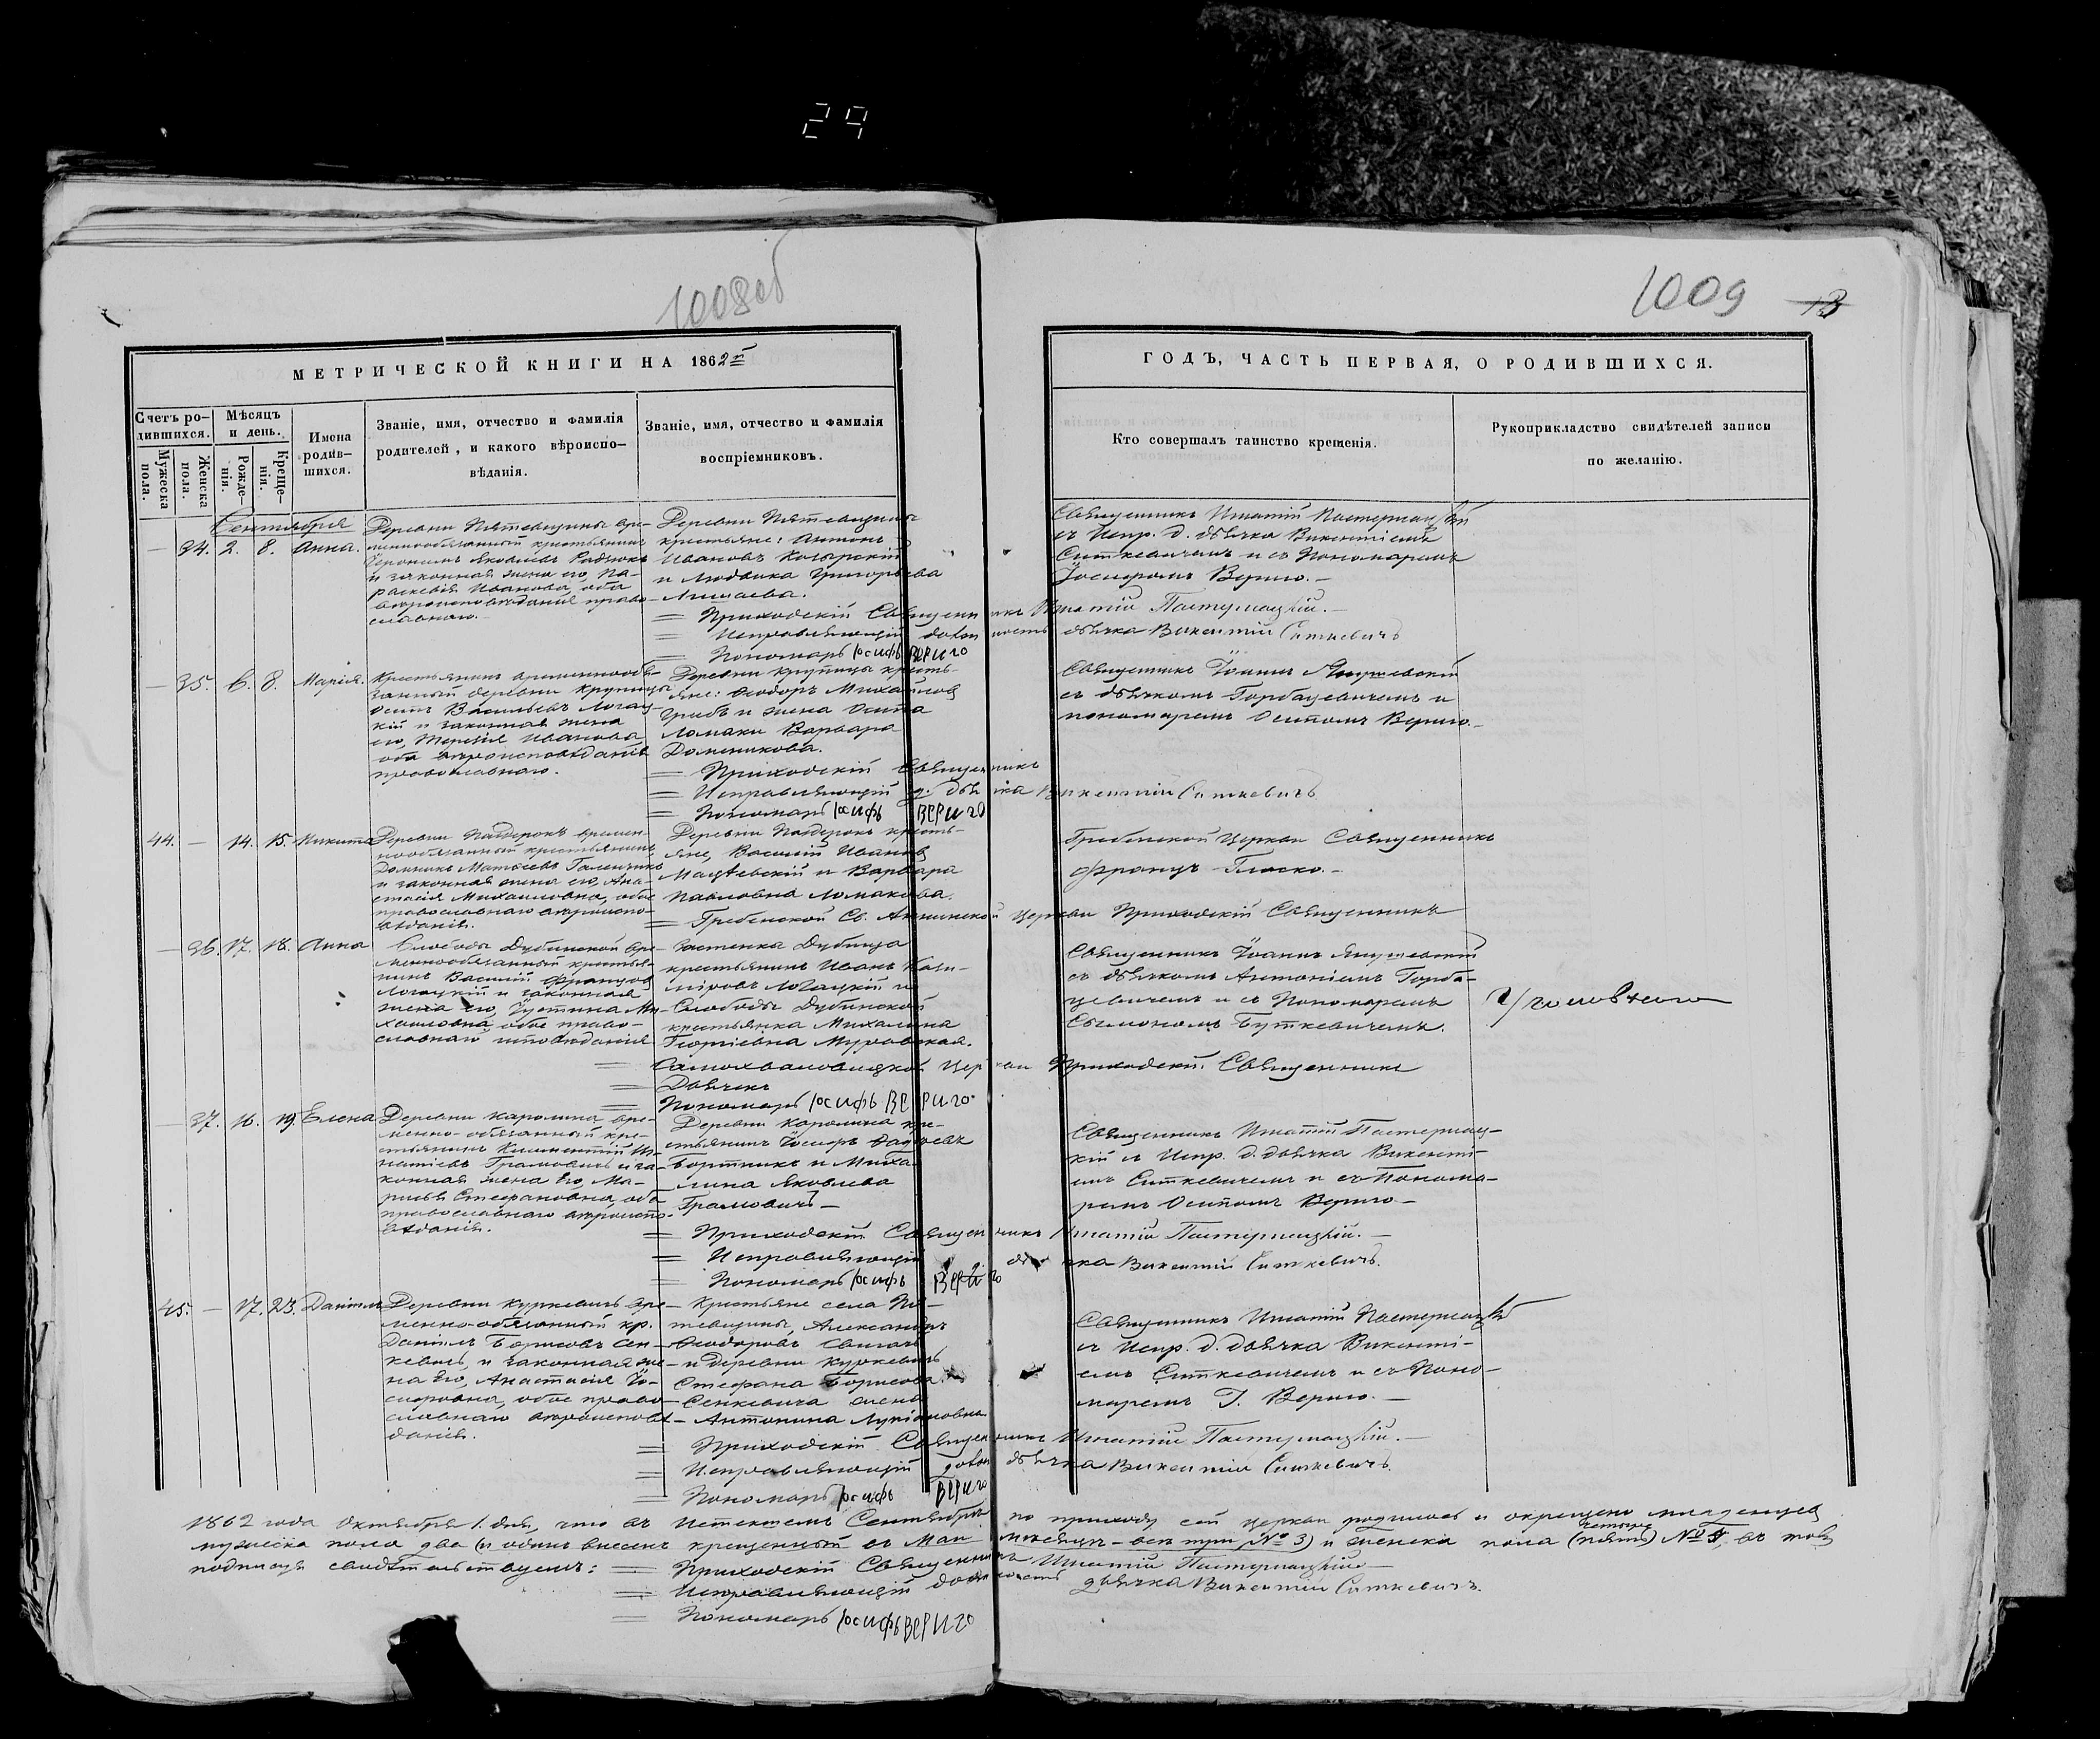 29
1008об
1009 13
МЕТРИЧЕСКОЙ КНИГИ НА 1862й
ГОДЪ, ЧАСТЬ ПЕРВАЯ, О РОДИВШИХСЯ.
Счетъ ро-
дившихся.
Мужеска
пола.
Женска
пола.
Мѣсяцъ
и день.
Рожде-
нія.
Креще-
нія.
Имена
родив-
шихся.
Званіе, имя, отчество и фамилія
родителей, и какого вѣроиспо-
вѣданія.
Званіе, имя, отчество и фамилія
воспріемниковъ.
Кто совершалъ таинство крещенія.
Рукоприкладство свидѣтелей записи
по желанію.
Сентября
— 34. 2. 8. Анна.
Деревни Пятевщины вре-
меннообязанный крестьянинъ
Іеронимъ Яковлевъ
и законная жена его, Па-
раскевія Иванова, оба
вѣроисповѣданія право-
славнаго.
Деревни Пятевщины
крестьяне: Антонъ
Ивановъ
и Людвика Григорьева
Священникъ Игнатій Пастернацкій
съ Испр. д. дьячка Викентіемъ
Ситкевичемъ и съ Пономаремъ
Іосифомъ Вериго.—
= Приходскій Священникъ Игнатій Пастернацкій.—
= Исправляющій должность дьячка Викентій Ситкевичъ
= Пономарь Іосифъ Вериго
— 35. 6. 8. Марія.
Крестьянинъ временнообя-
занный деревни Крупицы
Осипъ Васильевъ
и законная жена
его, Терезія Иванова
оба вѣроисповѣданія
православнаго.
Деревни Крупицы кресть-
яне: Ѳеодоръ Михайловъ
Грибъ и жена Осипа
Ломаки Варвара
Доминикова.
Священникъ Іоаннъ
съ дьячкомъ Горбацевичемъ и
пономаремъ Осипомъ Вериго.—
= Приходскій Священникъ
= Исправляющій д. дьячка Викентій Ситкевичъ
= Пономарь Іосифъ Вериго
44. — 14. 15. Никита
времен-
нообязанный крестьянинъ
Матвѣевъ
и законная жена его, Ана-
стасія Михайловна, обое
православнаго вѣроиспо-
вѣданія.
кресть-
яне, Василій Ивановъ
и Варвара
Павловна Ломакова.
Гребенской Церкви Священникъ
Францъ
= Гребенской Св. Аннинской церкви Приходскій Священникъ
— 36. 17. 18. Анна
Слободы Дубинской вре-
меннообязанный крестья-
нинъ Василій Францовъ
и законная
жена его, Іустина Ми-
хайловна, обое право-
славнаго исповѣданія
Застенка Дубица
крестьянинъ Иванъ Кази-
міровъ и
Слободы Дубинской
крестьянка Михалина
Георгіевна Муравская.
Священникъ Іоаннъ
съ дьячкомъ Антоніемъ Горба-
цевичемъ и съ Пономаремъ
Сымономъ Буткевичемъ.
= Самохваловицкой Церкви Приходскій Священникъ
= Дьячекъ
= Пономарь Іосифъ Вериго.
— 37. 16. 19. Елена
Деревни Каролина вре-
менно-обязанный кре-
стьянинъ Климентій Иг-
натіевъ Грамовичъ и за-
конная жена Его, Ма-
рцела Стефановна, оба
православнаго вѣроиспо-
вѣданія.
Деревни Каролина кре-
стьянинъ Іосифъ
Бортникъ и Миха-
лина Яковлева
Грамовичъ —
Священникъ Игнатій Пастернац-
кій съ Испр. д. дьячка Викенті-
емъ Ситкевичемъ и съ Понома-
ремъ Осипомъ Вериго.—
= Приходскій Священникъ Игнатій Пастернацкій.—
= Исправляющій д. дьячка Викентій Ситкевичъ.
= Пономарь Іосифъ Вериго
45. — 17. 23. Даніилъ
Деревни Куркевичъ вре-
менно-обязанный кр.
Даніилъ Борисовъ Сен-
кевичъ, и законная же-
на Его, Анастасія Іо-
сифовна, обое право-
славнаго вѣроисповѣ-
данія.
Крестьяне села Пя-
тевщины, Александръ
Ѳеодоровъ
и деревни Куркевичъ
Стефана Борисова
Сенкевича жена
Антонина Лукіановна.
Священникъ Игнатій Пастернацкій
съ Испр. д. дьячка Викенті-
емъ Ситкевичемъ и съ Поно-
маремъ І. Вериго.—
= Приходскій Священникъ Игнатій Пастернацкій.—
= Исправляющій должн дьячка Викентій Ситкевичъ.
= Пономарь Іосифъ Вериго
1862 года Октября 1. дня, что въ истекшемъ Сентябрѣ по приходу сей церкви родилось и окрещено младенцевъ
мужеска пола два (и одинъ внесенъ крещенный въ Маи мѣсяцѣ - всѣ три № 3) и женска пола (пять) четыре № 4, въ томъ
подписуя свидѣтельствуемъ: = Приходскій Священникъ Игнатій Пастернацкій
= Исправляющій должность дьячка Викентій Ситкевичъ.
= Пономарь Іосифъ Вериго